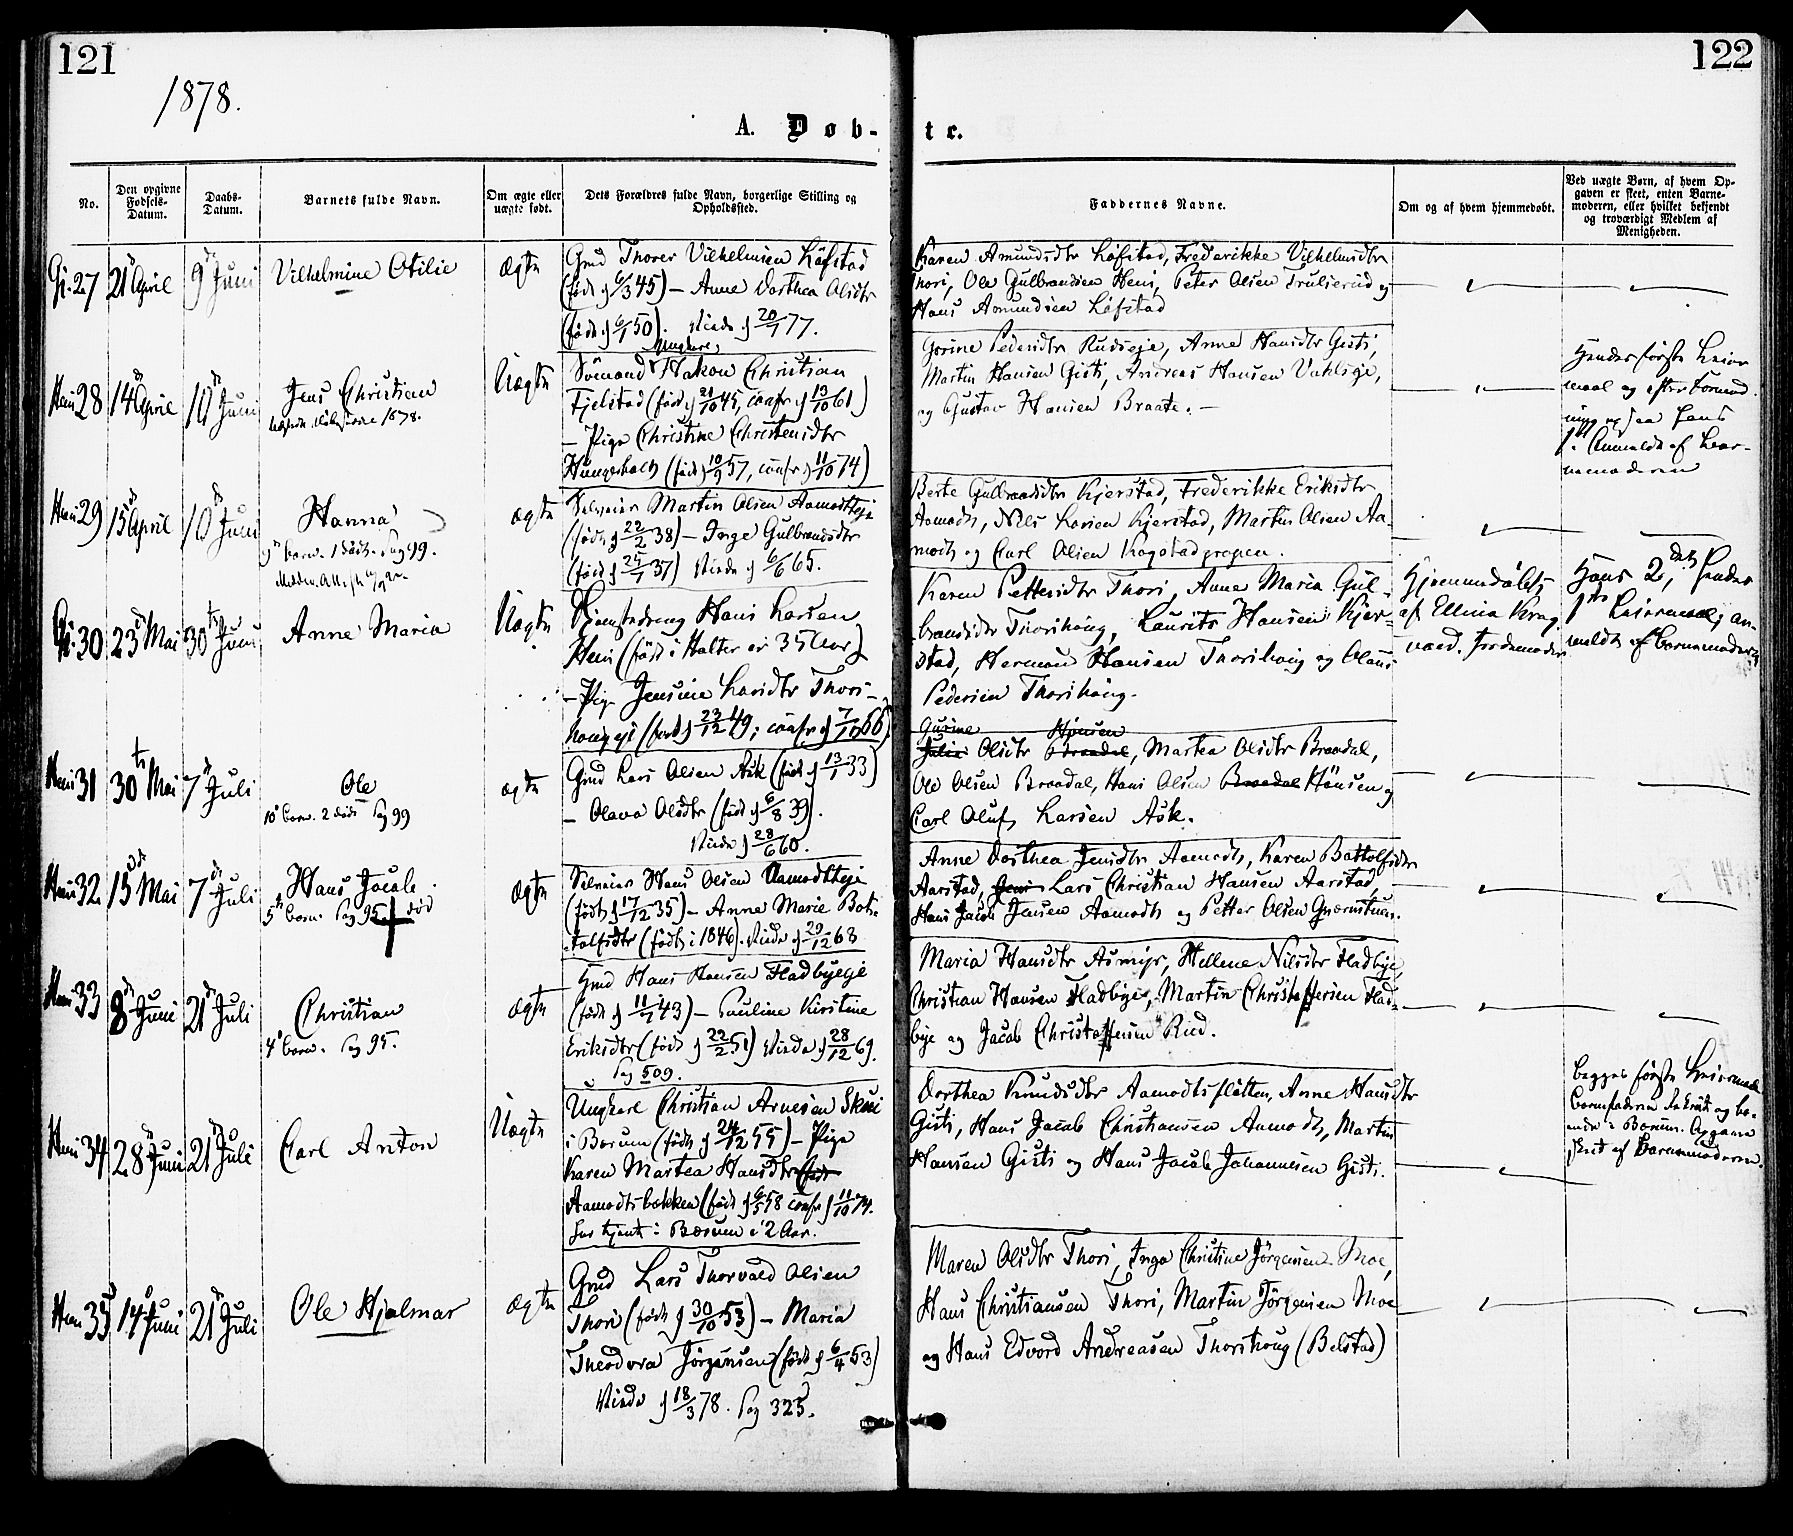 121
122
1878.
A. Døb-
te.
No.
Den opgivne
Fødsels-
Datum.
Daabs-
Datum.
Barnets fulde Navn.
Om ægte eller
uægte født.
Dets Forældres fulde Navn, borgerlige Stilling og
Opholdssted.
Faddernes Navne.
Om og af hvem hjemmedøbt.
Ved uægte Børn, af hvem Op-
gaven er skeet, enten Barne-
moderen, eller hvilket bekjendt
og troværdigt Medlem af
Menigheden.
27
21 April
9 Juni
Vilhelmine Otilie
ægte
Grd Thorer Vilhelmsen Løfstad
(født 6/3 45) – Anne Dorthea Olsdtr
(født 6/1 50). Viede 20/1 77.
Karen Amundsdtr Løfstad, Frederikke Vilhelmsdtr
Thori, Ole Gulbrandsen Heni, Peter Olsen Trulserud og
Hans Amundsen Løfstad
28
14 April
10 Juni
Jens Christian
1878.
Uægte
Ungkarl,
Sömand Hakon Christian
Fjelstad (født 21/10 45, conf 13/10 61)
– Pige Christine Christensdtr
Hungerholt (født 10/9 57, conf 11/10 74)
Gorine Pedersdtr Rudseje, Anne Hansdtr Gisti,
Martin Hansen Gisti, Andreas Hansen
og Gustav Hansen Braate. –
Hendes første Leier
maal og efter
ogsaa hans
1ste. Anmeldt af bar-
nemoderen
Heni 29
15 April
10 Juni
Hanna
9de barn. 1 död. Pag 99.
ægte
Selveier Martin Olsen Aamodteje
(født 22/2 38) – Inge Gulbrandsdtr
(født 25/1 37) Viede 6/6 65.
Berte Gulbrandsdtr Kjerstad, Frederikke Eriksdtr
Aamodt, Nils Larsen Kjerstad, Martin Olsen Aa-
modt og Carl Olsen Kogstadgropen.
30
23 Mai
30 Juni
Anne Maria
Uægte
Hans Larsen
Heni (født i Holter er 35 Aar)
– Pige Jensine Larsdtr Thori-
(født 23/12 49; conf 7/10 66)
Karen Pettersdtr Thori, Anne Maria Gul-
brandsdtr Thorihoug, Laurits Hansen Kjer-
stad, Herman Hansen Thorihoug og Olaus
Pedersen Thorihoug.
Hjemmedøbt
af Ellina
Jordemoder
Hans 2det, hendes
1ste Leiermaal; an-
meldt af barnemoderen
Heni 31
30 Mai
7 Juli
Ole
10 barn. 2 døde Pag 99
ægte
Grd Lars Olsen Ask (født 13/1 33)
– Olava Olsdtr (født 6/8 39).
Viede 28/6 60.
Gurine Hønsen
Julie Olsdtr Braadal, Martea Olsdtr Braadal,
Ole Olsen Braadal, Hans Olsen Braadal Hönsen og
Carl Oluf Larsen Ask.
Heni 32
15 Mai
7 Juli
Hans Jacob
5te barn. Pag 95. død
ægte
Selveier Hans Olsen Aamodteje
(født 17/12 35) – Anne Marie Bot-
tolfsdtr (født i 1846). Viede 29/12 68
Anne Dorthea Jensdtr Aamodt, Karen Bottolfsdtr
Aarstad, Jens Lars Christian Hansen Aarstad,
Hans Jacob Jensen Aamodt og Petter Olsen
Heni 33
8 Juni
21 Juli
Christian
4 barn. Pag 95.
ægte
Grd Hans Hansen Fladbyeje
(født 11/7 43) – Pauline Kirstine
Eriksdtr (født 22/2 51) Viede 28/12 69.
Pag 509.
Maria Hansdtr Asmyr, Hellene Nilsdtr Fladbye,
Christian Hansen Fladbye, Martin Christoffersen Flad-
bye og Jacob Christoffersen Rud.
Heni 34
28 Juni
21 Juli
Carl Anton
Uægte
Ungkarl Christian Arnesen Skui
i Bærum (født 24/12 55) – Pige
Karen Martea Hansdtr (født
Aamodtsbækken (født 6/5 58 conf 11/10 74.
har tjent i Bærum i 2 Aar.
Dorthea Knudsdtr Aamodtsfløtten, Anne Hansdtr
Gisti, Hans Jacob Christiansen Aamodt, Martin
Hansen Gisti og Hans Jacob Johannesen Gisti.
begges første Leiermaal
barnefaderen
i Bærum. Opgaven
skeet af Barnemoderen.
Heni 35
14 Juni
21 Juli
Ole Hjalmar
ægte
Grd Lars Thorvald Olsen
Thori (født 30/10 53) – Maria
Theodora Jörgensen (født 6/4 53)
Viede 18/3 78. Pag 325.
Maren Olsdtr Thori, Inga Christine Jörgensen Moe,
Hans Christiansen Thori, Martin Jörgensen Moe
og Hans Edvard Andreasen Thorihoug (Belstad)